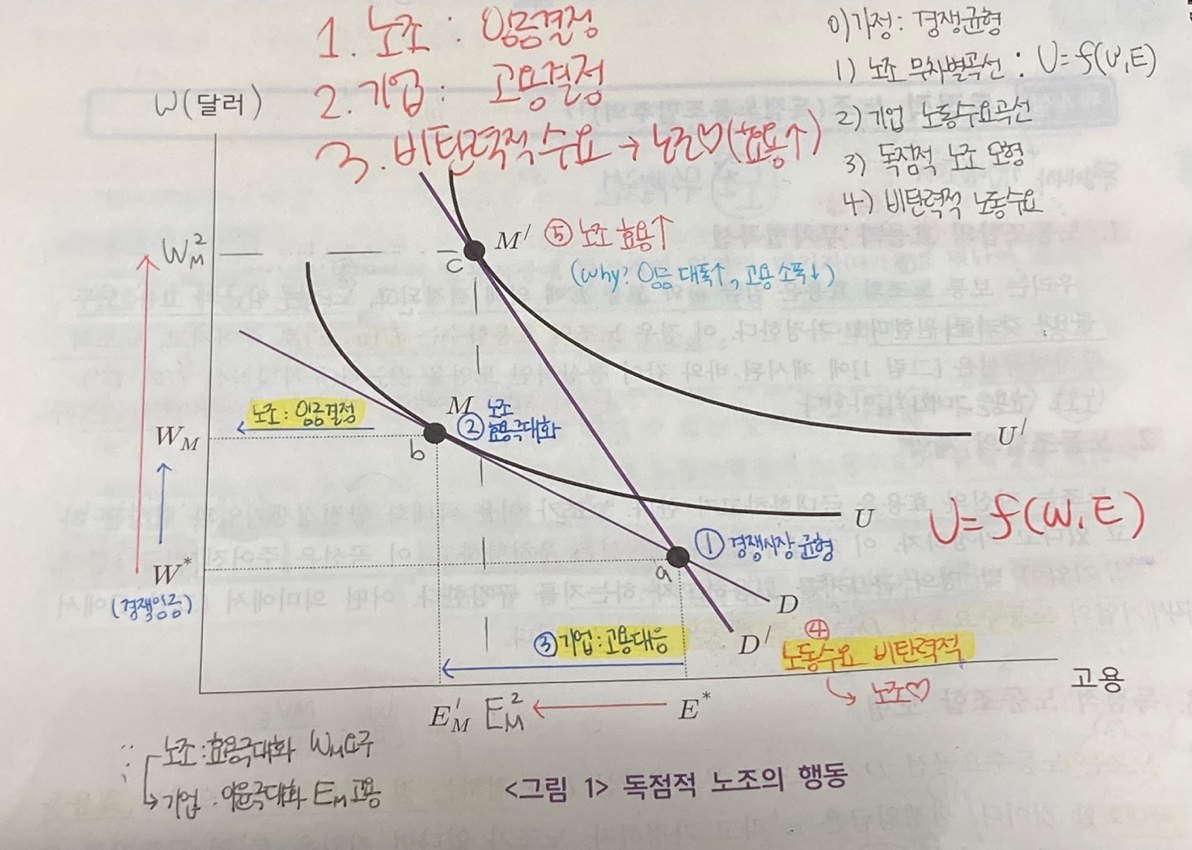 1. 노조 : 임금결정
2. 기업 : 고용결정
3. 비탄력적 수요 → 노조♡(효용↑)
0) 가정 : 경쟁균형
1) 노조 무차별곡선 : U=f(W,E)
2) 기업 노동수요곡선
3) 독점적 노조 모형
4) 비탄력적 노동수요
W(달러)
W²M
c
M′ ⑤ 노조 효용↑
(why? 임금 대폭↑, 고용 소폭↓)
노조 : 임금결정
M
② 노조 효용극대화
WM
b
U′
U
U=f(W,E)
① 경쟁시장 균형
a
W*
(경쟁임금)
D
D′
④
노동수요 비탄력적
↳ 노조♡
③ 기업 : 고용대응
고용
E′M E²M ← E*
∴ 노조 : 효용극대화 WM요구
→ 기업 : 이윤극대화 EM고용
<그림 1> 독점적 노조의 행동